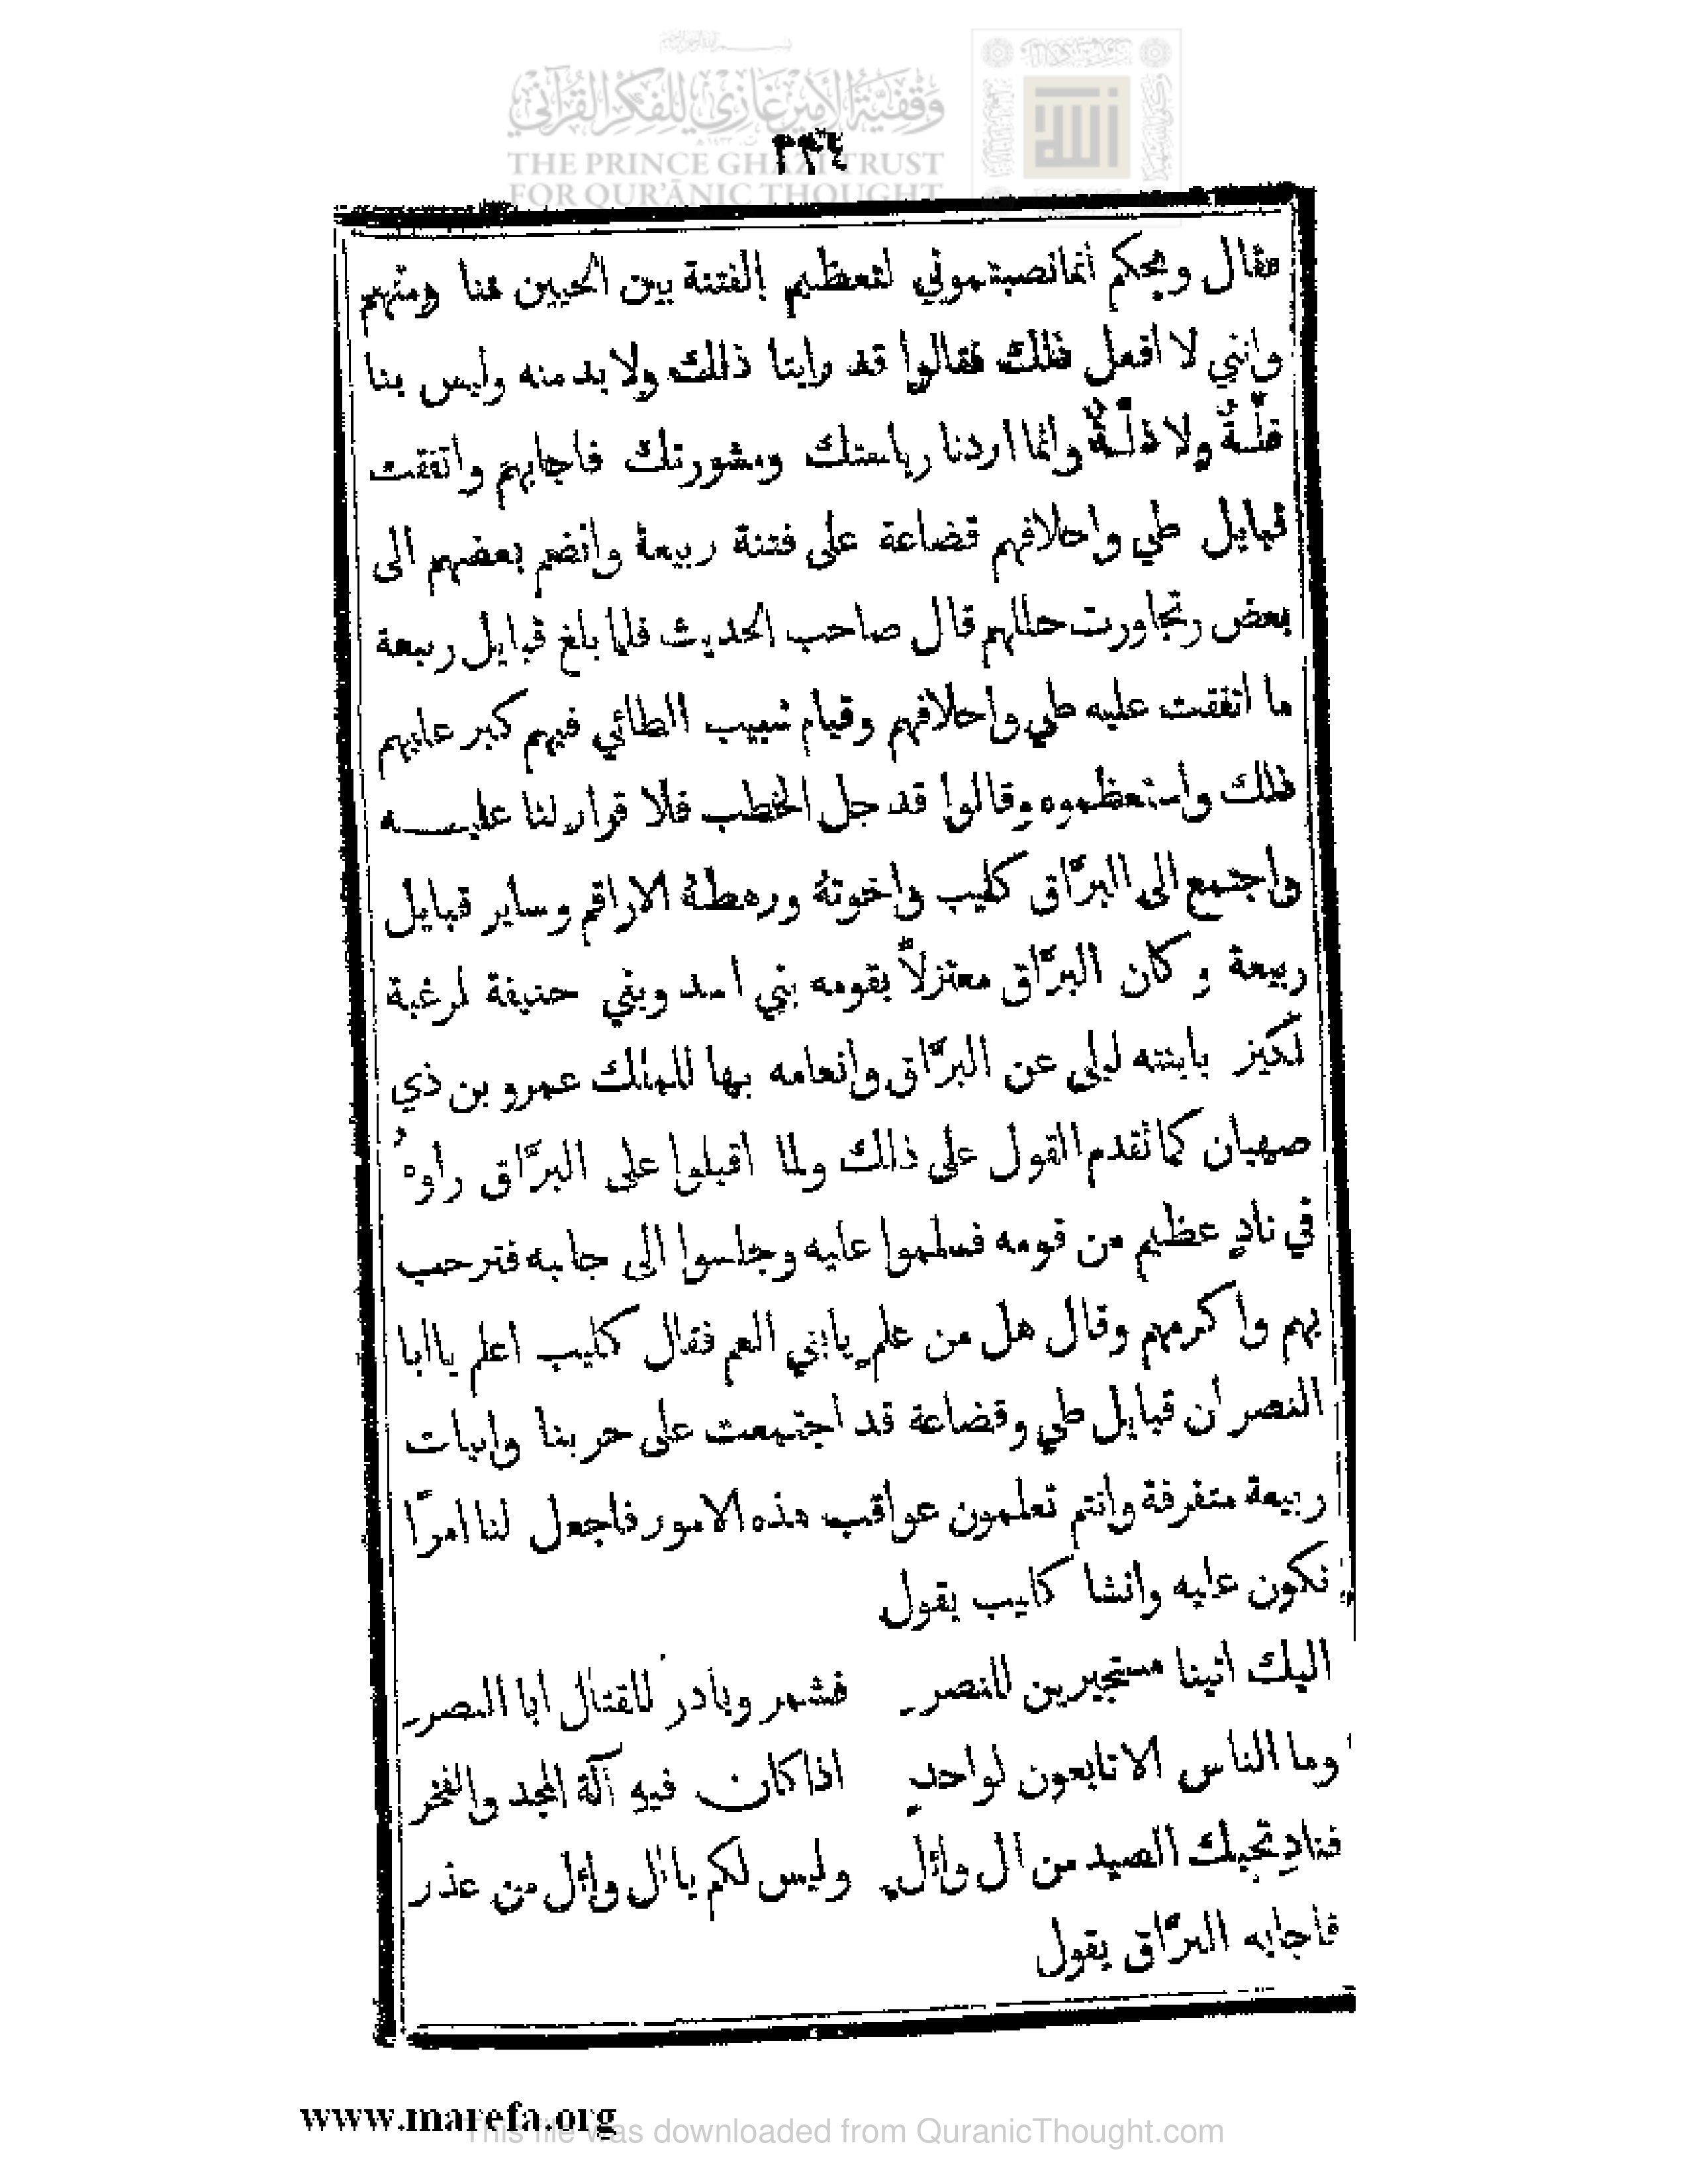 وقفية الأمير غازي للفكر القرآني
THE PRINCE GHAZI TRUST
FOR QUR'ĀNIC THOUGHT
فقال ويحكم انما نصبتموني لتعظيم الفتنة بين الحيين منا ومنهم
وانني لا افعل ذلك فقالوا قد راينا ذلك ولا بد منه وليس بنا
قلّة ولا ذلّة وانما اردنا رياستك ومشورتك فاجابهم واتفقت
قبايل طي واحلافهم قضاعة على فتنة ربيعة وانضم بعضهم الى
بعض وتجاورت حللهم قال صاحب الحديث فلما بلغ قبايل ربيعة
ما اتفقت عليه طي واحلافهم وقيام شبيب الطائي فيهم كبر عليهم
ذلك واستعظموه وقالوا قد جل الخطب فلا قرار لنا عليه
واجتمع الى البرّاق كليب واخوتة ورهطة الاراقم وساير قبايل
ربيعة وكان البرّاق معتزلاً بقومه بني اسد وبني حنيفة لرغبة
لكيز بابنته ليلى عن البرّاق وانعامه بها للملك عمرو بن ذي
صهبان كما تقدم القول على ذلك ولما اقبلوا على البرّاق راوهُ
في نادٍ عظيم من قومه فسلموا عليه وجلسوا الى جابه فترحب
بهم واكرمهم وقال هل من علمٍ يا بني العم فقال كليب اعلم يا ابا
النصر ان قبايل طي وقضاعة قد اجتمعت على حربنا وابيات
ربيعة متفرقة وانتم تعلمون عواقب هذه الامور فاجعل لنا امرًا
نكون عليه وانشا كليب يقول
اليك اتينا مستجيرين للنصرِ فشمر وبادر للقتال ابا النصرِ
وما الناس الا تابعون لواحدٍ اذا كان فيهِ آلة المجد والفخر
فنادِ تجبك الصيد من ال وائلٍ وليس لكم يا ال وائل من عذر
فاجابه البرّاق يقول
www.marefa.org
This file was downloaded from QuranicThought.com